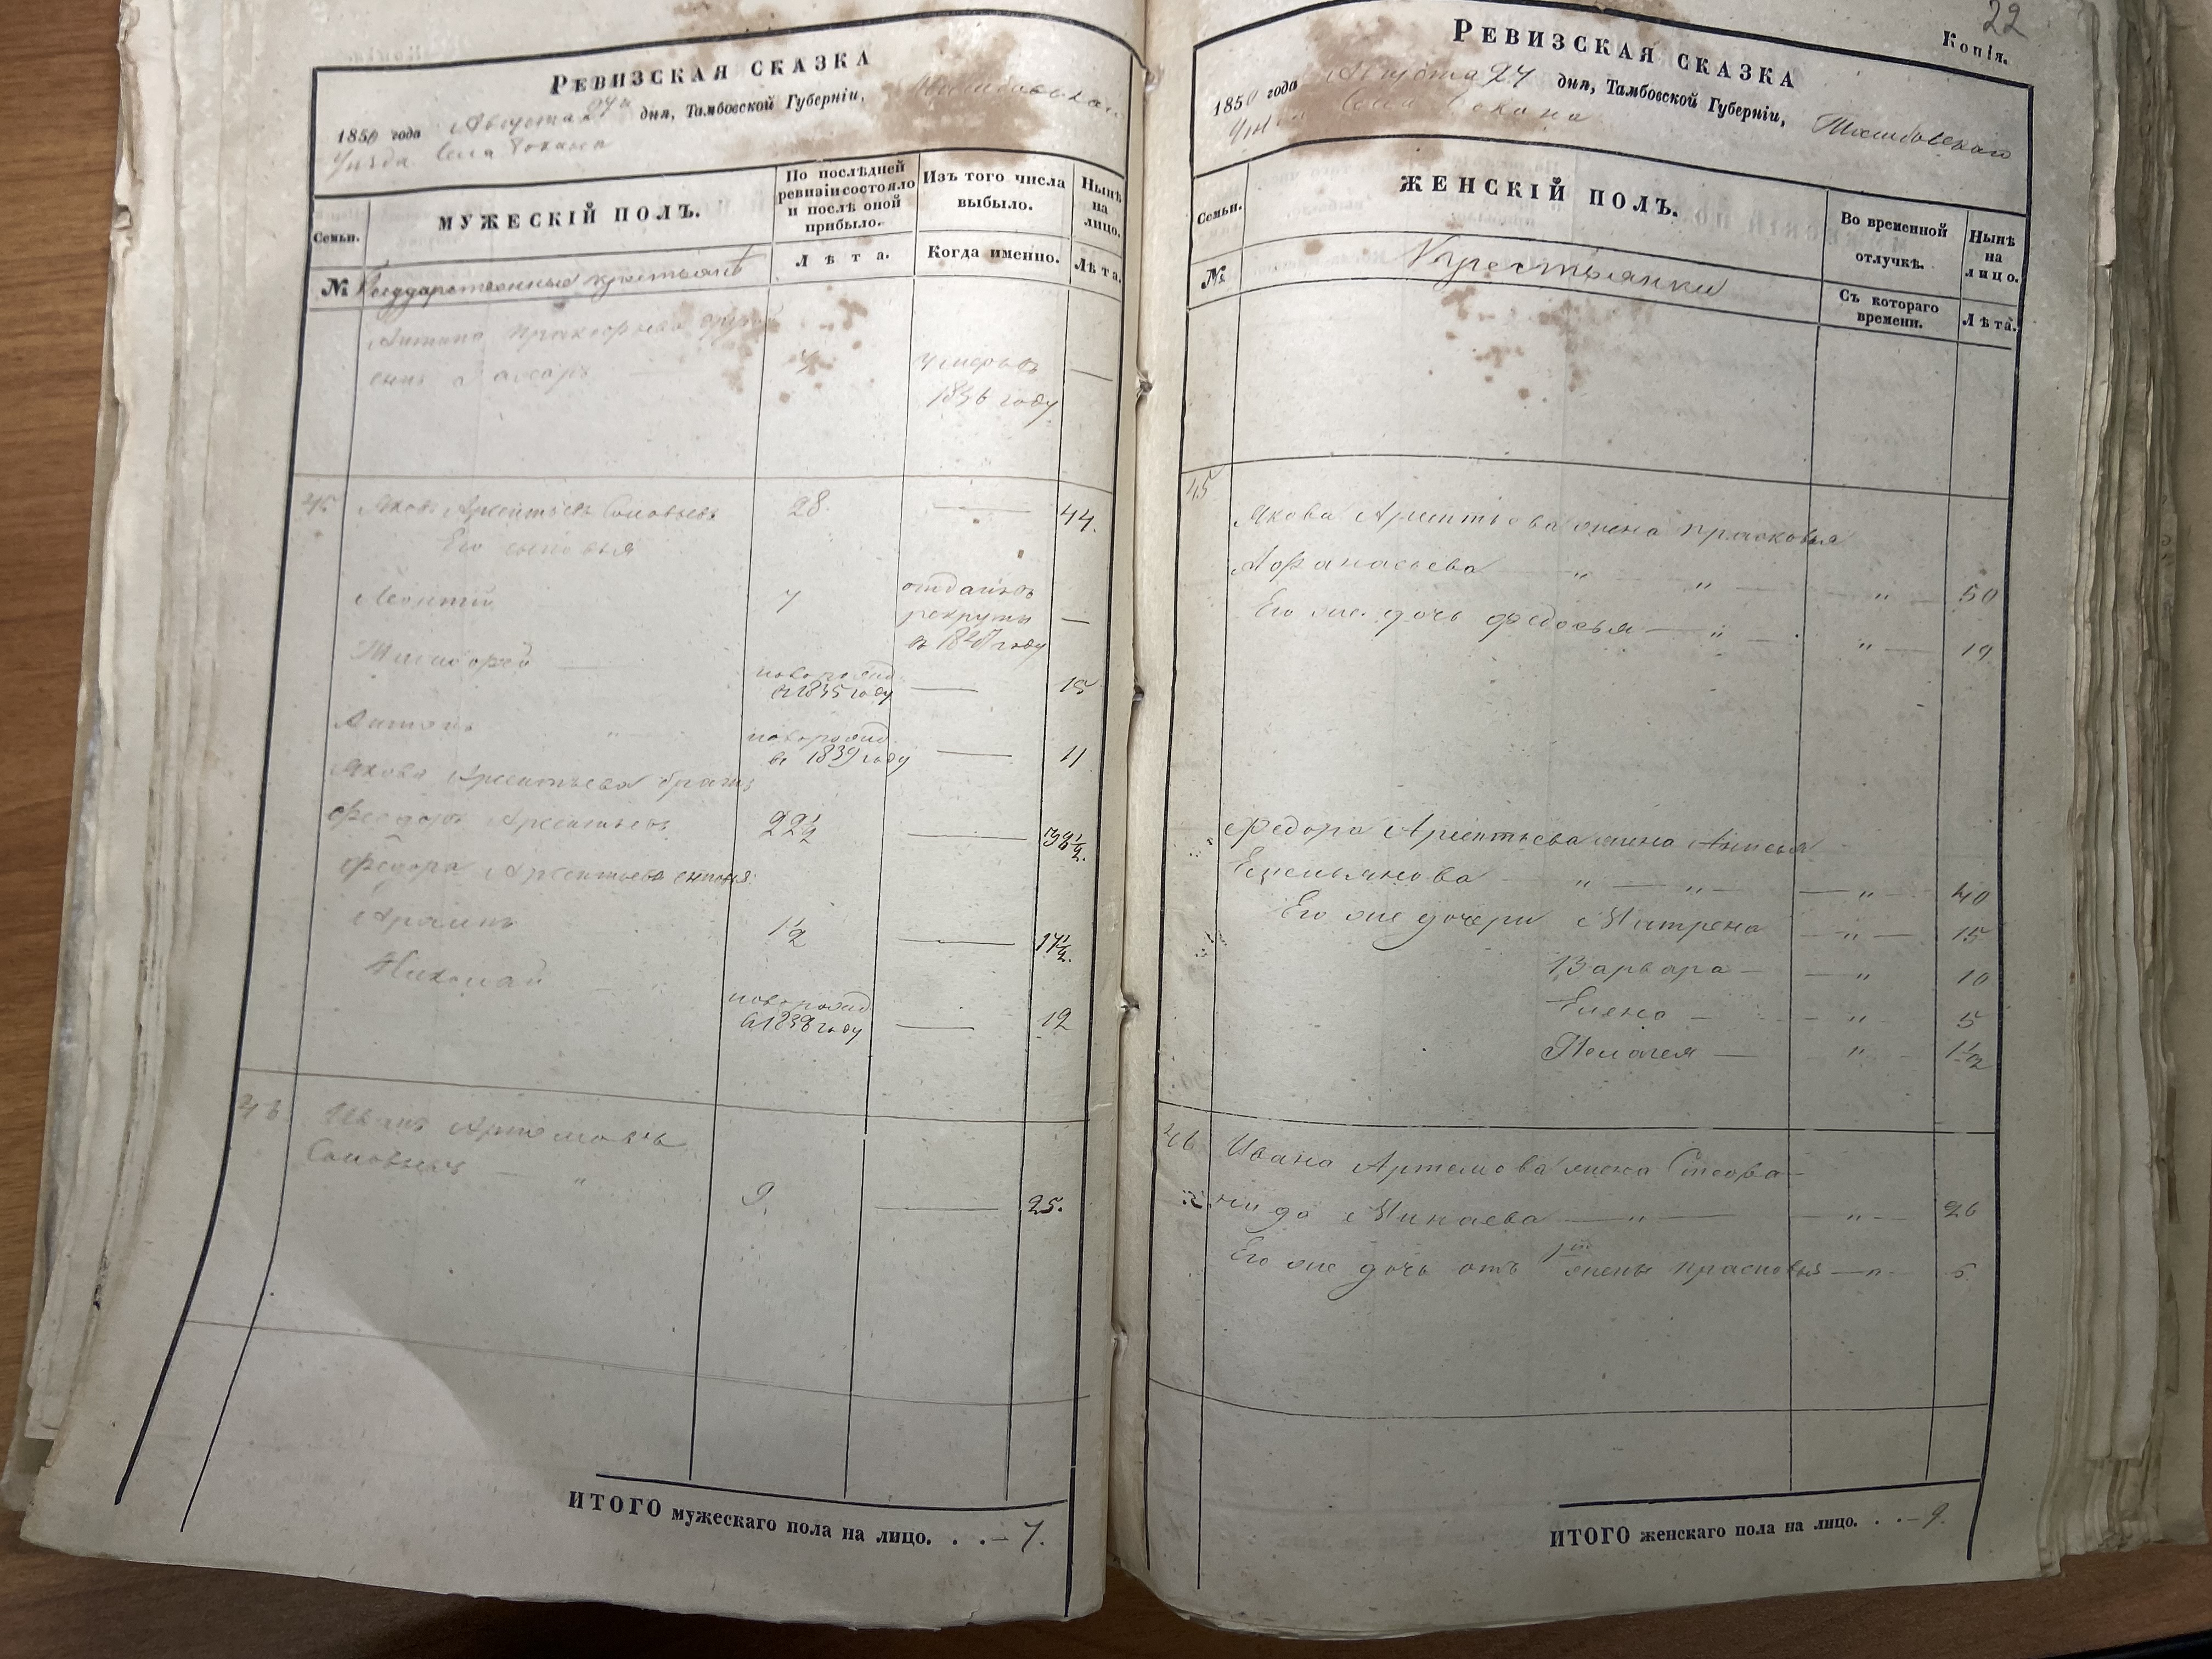 РЕВИЗСКАЯ СКАЗКА
1850 года Августа 27го дня, Тамбовской Губерніи, Тамбовскаго
Уѣзда Села
МУЖЕСКІЙ ПОЛЪ.
По послѣдней ревизіи состояло и послѣ оной прибыло.
Изъ того числа выбыло.
Нынѣ на лицо.
Семьи.
Лѣта.
Когда именно.
Лѣта.
№ Государственные крестьяне
Антипа Пракофьева другой
сынъ Захаръ умеръ въ —
1836 году
45 Яковъ Арсентьевъ Соловьевъ 28. — 44.
Его сыновья
Леонтій 7 отданъ въ
рекруты —
въ году
Тимофей — новорожд.
въ 1835 году — 15
Антонъ " новорожд.
въ 1839 году — 11
Якова Арсентьева братъ
Феодоръ Арсентьевъ 22½ — 38½.
Федора Арсентьева сыновья
1½ — 17½.
Николай новорожд.
въ 1838 году — 12
46 Иванъ Артемовъ
Соловьевъ — " 9. — 25.
ИТОГО мужескаго пола на лицо. . .— 7.
22
Копія.
РЕВИЗСКАЯ СКАЗКА
1850 года Августа 27 дня, Тамбовской Губерніи, Тамбовскаго
Уѣзда Села
ЖЕНСКІЙ ПОЛЪ.
Во временной отлучкѣ.
Нынѣ на лицо.
Семьи.
№
Крестьянки
Съ котораго времени.
Лѣта.
45
Якова Арсентьева жена Прасковья
Афанасьева — " — " — " — 50
Его же дочь Федосья — " — " — 19
Федора Арсентьева жена Анисья
Емельянова — " — " — " — 40
Его же дочери Матрена — " — 15
Варвара — — " 10
Елена — " — 5
Пелагея — " 1½
46 Ивана Артемова жена Степа-
нида Минаева — " — — " — 26
Его же дочь отъ 1й жены Прасковья — " — 6
ИТОГО женскаго пола на лицо. . .— 9.